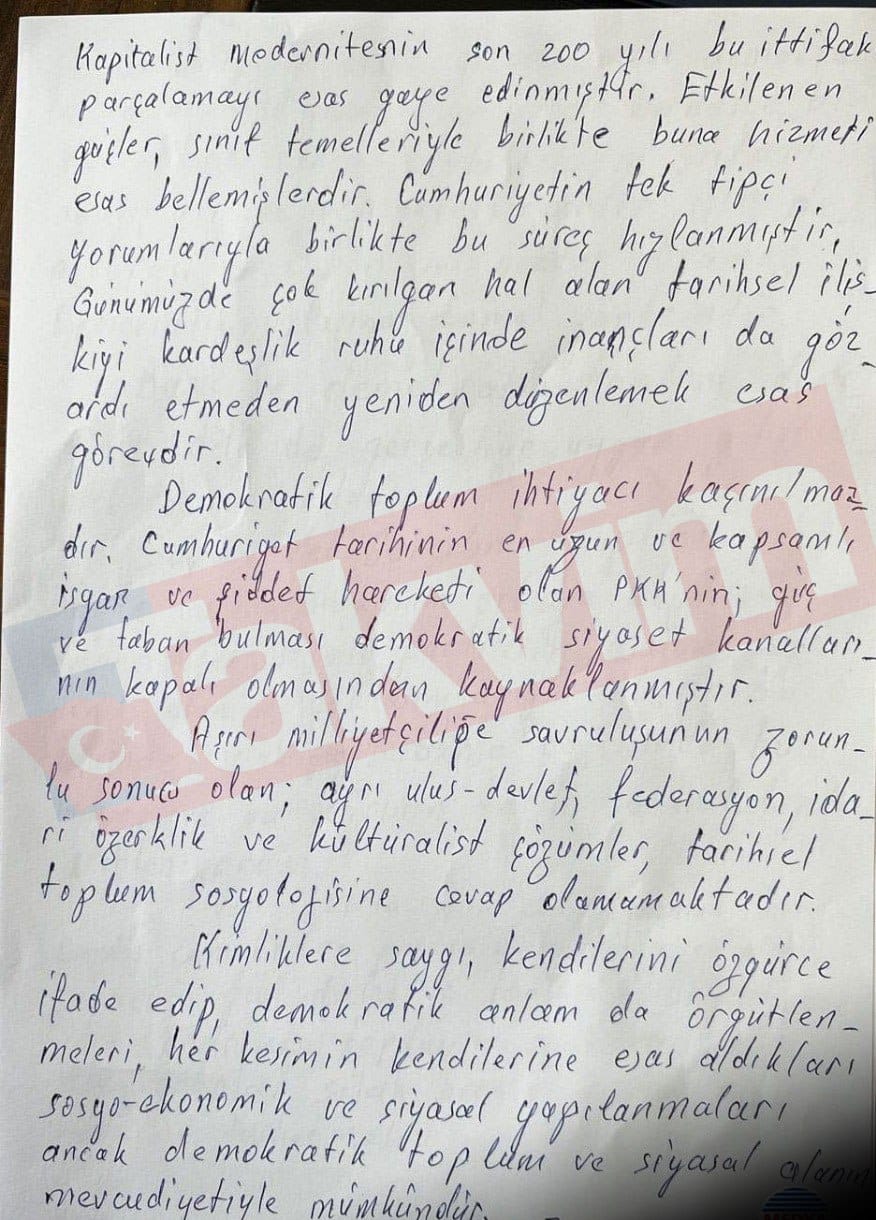 Kapitalist modernitenin son 200 yılı bu ittifak
parçalamayı esas gaye edinmiştir. Etkilenen
güçler, sınıf temelleriyle birlikte buna hizmeti
esas bellemişlerdir. Cumhuriyetin tek tipçi
yorumlarıyla birlikte bu süreç hızlanmıştır,
Günümüzde çok kırılgan hal alan tarihsel iliş-
kiyi kardeşlik ruhu içinde inançları da göz
ardı etmeden yeniden düzenlemek esas
görevdir.
Demokratik toplum ihtiyacı kaçınılmaz
dır. Cumhuriyet tarihinin en uzun ve kapsamlı
isyan ve şiddet hareketi olan PKK'nin; güç
ve taban bulması demokratik siyaset kanalları-
nın kapalı olmasından kaynaklanmıştır.
Aşırı milliyetçiliğe savruluşunun zorun-
lu sonucu olan; ayrı ulus-devlet, federasyon, ida-
ri özerklik ve kültüralist çözümler, tarihsel
toplum sosyolojisine cevap olamamaktadır.
Kimliklere saygı, kendilerini özgürce
ifade edip, demokratik anlam da örgütlen-
meleri, her kesimin kendilerine esas aldıkları
sosyo-ekonomik ve siyasal yapılanmaları
ancak demokratik toplum ve siyasal alanın
mevcudiyetiyle mümkündür.
takvim